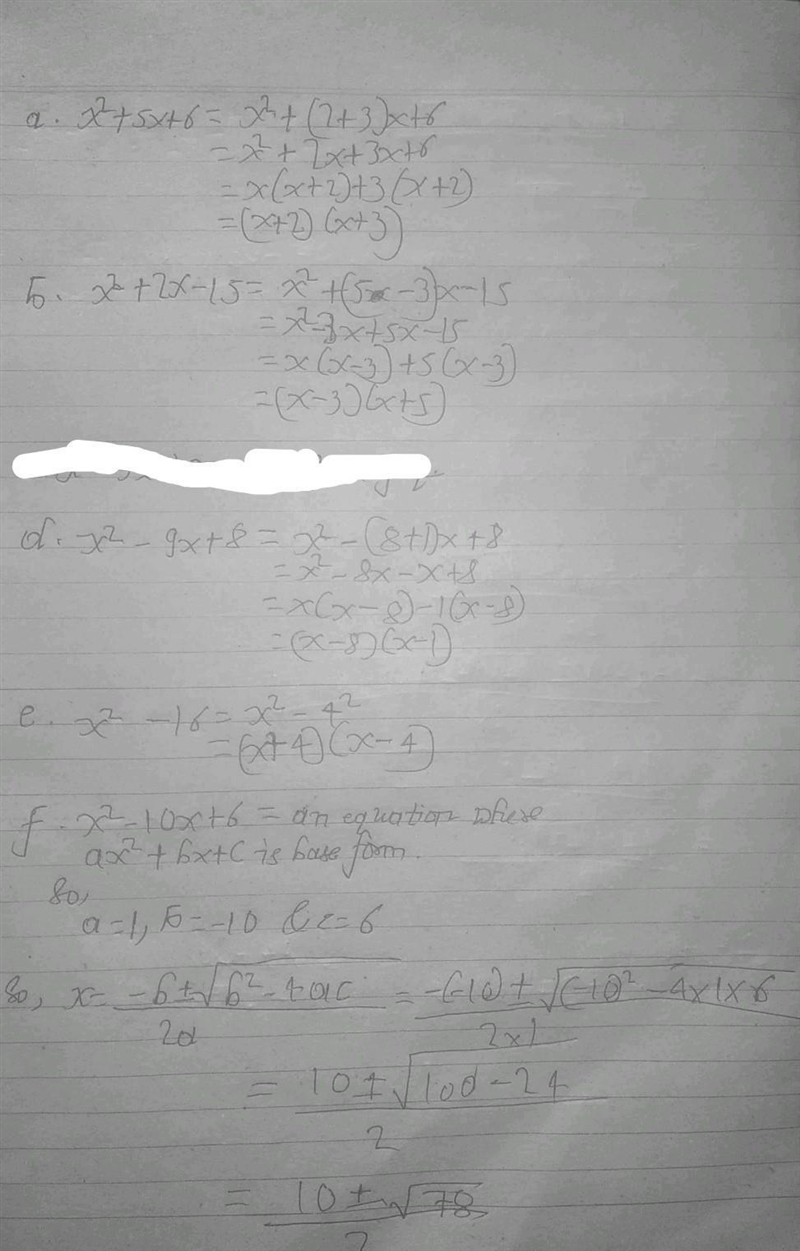 a. x²+5x+6 = x²+(2+3)x+6
= x²+2x+3x+6
= x(x+2)+3(x+2)
= (x+2)(x+3)
b. x²+2x-15 = x²+(5-3)x-15
= x²-3x+5x-15
= x(x-3)+5(x-3)
= (x-3)(x+5)
d. x²-9x+8 = x²-(8+1)x+8
= x²-8x-x+8
= x(x-8)-1(x-8)
= (x-8)(x-1)
e. x²-16 = x²-4²
= (x+4)(x-4)
f. x²-10x+6 = an equation where
ax²+bx+c is base form.
so,
a=1, b=-10 & c=6
so, x = (-b±√(b²-4ac))/2a = (-(-10)±√((-10)²-4×1×6))/2×1
= (10±√(100-24))/2
= (10±√78)/2